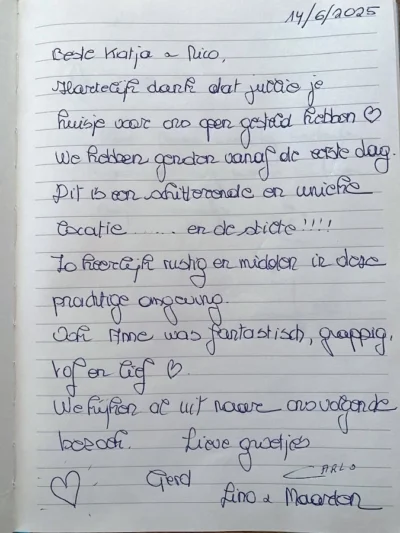 14/6/2025
Beste Katja & Nico,
Hartelijk dank dat jullie je
huisje voor ons open gesteld hebben ♡
We hebben genoten vanaf de eerste dag.
Dit is een schitterende en unieke
locatie ...... en de stilte !!!!
Zo heerlijk rustig en midden in deze
prachtige omgeving.
Ook Anne was fantastisch, grappig,
en lief ♡.
We kijken al uit naar ons volgende
bezoek. Lieve groetjes
♡ Gerd CARLO
Lino & Maarten